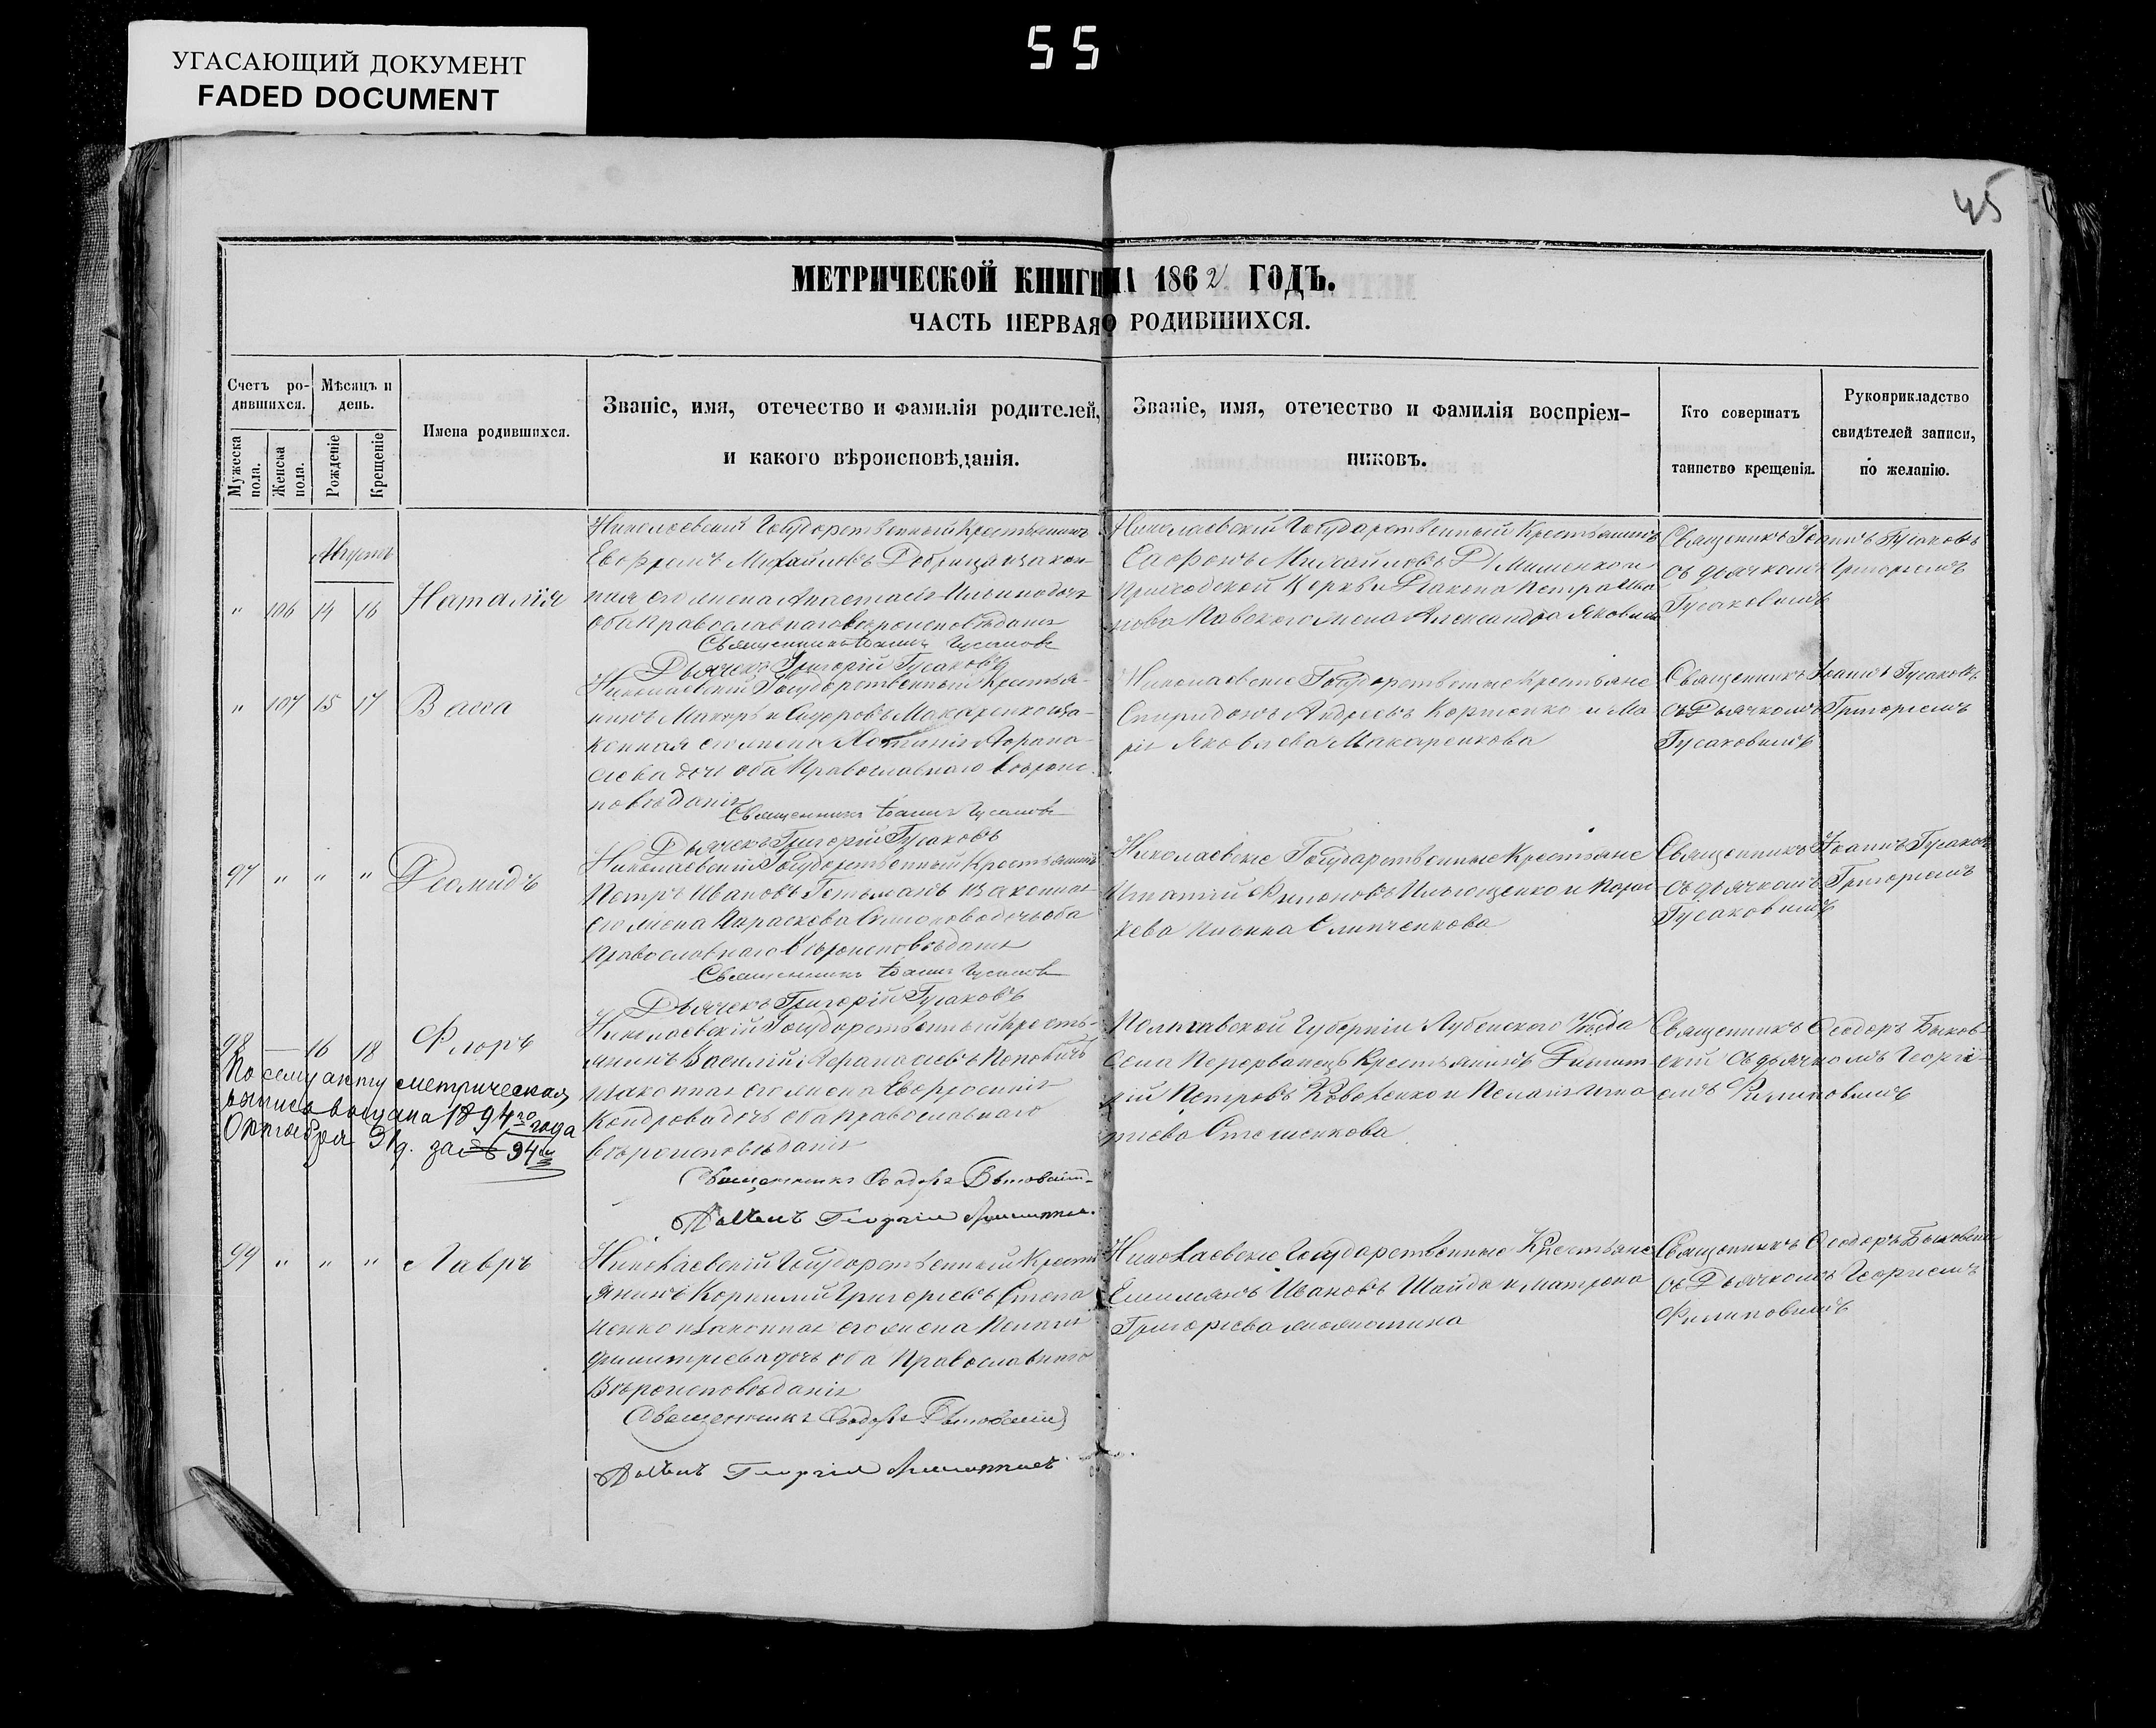 55
УГАСАЮЩИЙ ДОКУМЕНТ
FADED DOCUMENT
45
МЕТРИЧЕСКОЙ КНИГИ НА 1862 ГОДЪ.
ЧАСТЬ ПЕРВАЯ О РОДИВШИХСЯ.
Счетъ ро-
дившихся.
Мужеска пола.
Женска пола.
Мѣсяцъ и
день.
Рожденіе
Крещеніе
Имена родившихся.
Званіе, имя, отечество и фамилія родителей,
и какого вѣроисповѣданія.
Званіе, имя, отечество и фамилія воспріем-
никовъ.
Кто совершатъ
таинство крещенія.
Рукоприкладство
свидѣтелей записи,
по желанію.
Августъ
" 106 14 16 Наталія
Николаевскій Государственный Крестьянинъ
Михайловъ
его жена Анастасія Ильина дочь
оба Православнаго вѣроисповѣданія
Священникъ Іоаннъ Гусаковъ
Дьячекъ Григорій Гусаковъ
Николаевскій Государственный Крестьянинъ
Сафонъ Михайловъ
Приходской Церкви Діакона Петра
жена Александра Яковлева
Священникъ Іоаннъ Гусаковъ
съ дьячкомъ Григоріемъ
Гусаковымъ
" 107 15 17 Васса
Николаевскій Государственный Крестья-
нинъ Макаръ Сидоровъ Макаренко и за-
конная его жена
дочь оба Православнаго вѣроис-
повѣданія
Священникъ Іоаннъ Гусаковъ
Дьячекъ Григорій Гусаковъ
Николаевскіе Государственные Крестьяне
Спиридонъ Андреевъ и Ма-
рія Яковлева Макаренкова
Священникъ Іоаннъ Гусаковъ
съ Дьячкомъ Григоріемъ
Гусаковымъ
97 " " " Діомидъ
Николаевскій Государственный Крестьянинъ
Петръ Ивановъ Гетьманъ и законная
его жена Параскева дочь оба
Православнаго Вѣроисповѣданія
Священникъ Іоаннъ Гусаковъ
Дьячекъ Григорій Гусаковъ
Николаевскіе Государственные Крестьяне
Игнатій и Парас-
кева Ильина
Священникъ Іоаннъ Гусаковъ
съ дьячкомъ Григоріемъ
Гусаковымъ
98 — 16 18 Флоръ
По сему акту метрическая
выпись выдана 1894го года
Октября 31 д. за № 94м
Николаевскій Государственный Кресть-
янинъ Василій Афанасіевъ Поповичъ
и законная его жена Евфросинія
Кондрова дочь оба православнаго
вѣроисповѣданія
Священникъ Ѳеодоръ Быковскій
Дьячекъ Георгій
Полтавской Губерніи Лубенскаго Уѣзда
Села Крестьянинъ Димит-
рій Петровъ и Пелагія Игна-
тіева
Священникъ Ѳеодоръ Быков-
скій съ дьячкомъ Георгі-
емъ Филиповымъ
99 " " " Лавръ
Николаевскій Государственный Кресть-
янинъ Корнилій Григорьевъ Степа-
ненко и законная его жена Пелагія
Димитріева дочь оба Православнаго
Вѣроисповѣданія
Священникъ Ѳеодоръ Быковскій
Дьячекъ Георгій
Николаевскіе Государственные Крестьяне
Емиліанъ Ивановъ Шайда и Матрона
Григорьева
Священникъ Ѳеодоръ Быковскій
съ Дьячкомъ Георгіемъ
Филиповымъ